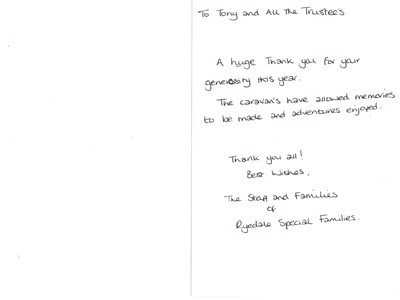 To Tony and All the Trustee's
A huge Thank you for your
generosity this year.
The caravan's have allowed memories
to be made and adventures enjoyed.
Thank you all!
Best Wishes,
The Staff and Families
of
Ryedale Special Families.